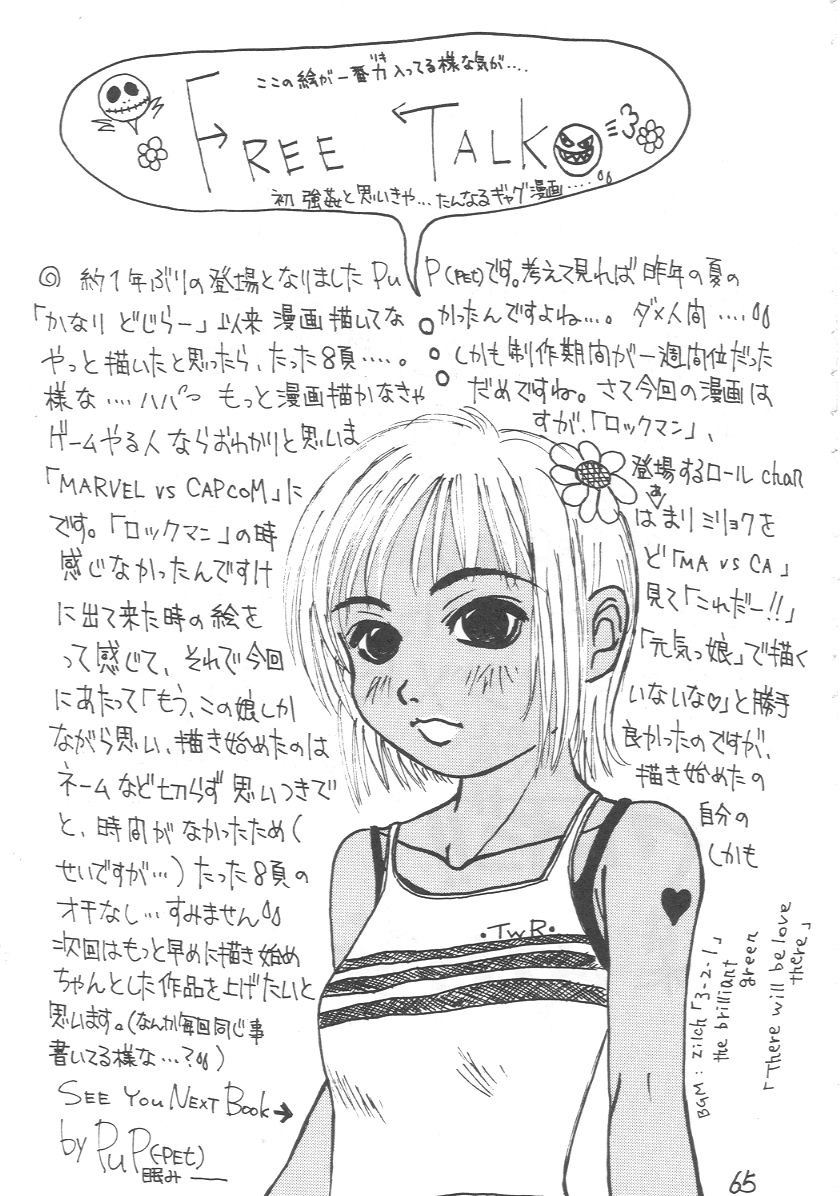 ここの絵が一番力入ってる様な気が....
FREE TALK
初強姦と思いきや...たんなるギャグ漫画....
◎ 約1年ぶりの登場となりました PuP(PET)です。考えて見れば昨年の夏の
「かなりどじらー」以来漫画描いてなかったんですよね...。ダメ人間....
やっと描いたと思ったら、たった8頁....。しかも制作期間が一週間位だった
様な....ハハハ もっと漫画描かなきゃだめですね。さて今回の漫画は
ゲームやる人ならおわかりと思いますが、「ロックマン」、
「MARVEL vs CAPCOM」に登場するロールchan
です。「ロックマン」の時はあまりミリョクを
感じなかったんですけど「MA vs CA」
に出て来た時の絵を見て「これだー!!」
って感じて、それで今回「元気っ娘」で描く
にあたって「もう、この娘しかいないな♡」と勝手
ながら思い、描き始めたのは良かったのですが、
ネームなど切らず思いつきで描き始めたの
と、時間がなかったため(自分の
せいですが...)たった8頁のしかも
オチなし...すみません
次回はもっと早めに描き始め
ちゃんとした作品を上げたいと
思います。(なんか毎回同じ事
書いてる様な...?)
SEE YOU NEXT BOOK→
by PuP(-PET)
眠み
・TWR・
BGM: zilch「3-2-1」
the brilliant green
「There will be love there」
65